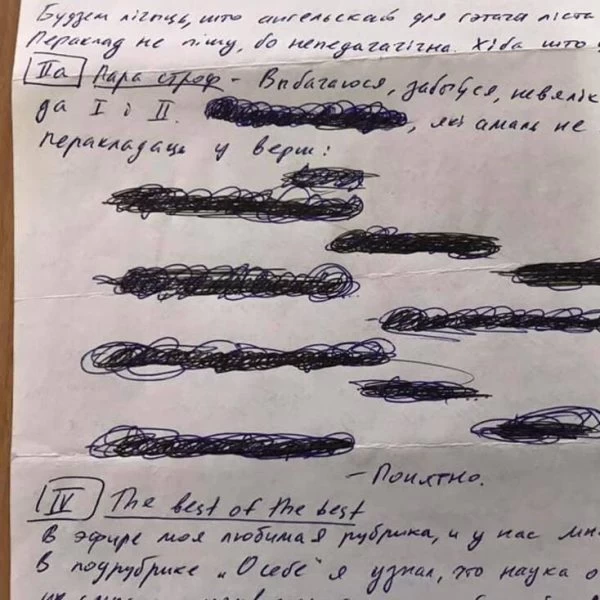 Будзем лічыць, што ангельскай для гэтага ліста
Пераклад не пішу, бо непедагагічна. Хіба што
IIa Пара строф - Выбачаюся, забыўся, невялік
да I і II. , які амаль не
перакладаць у верш:
- Понятно.
IV The best of the best
В эфире моя любимая рубрика, и у нас мн
В подрубрике "О себе" я узнал, что наука о